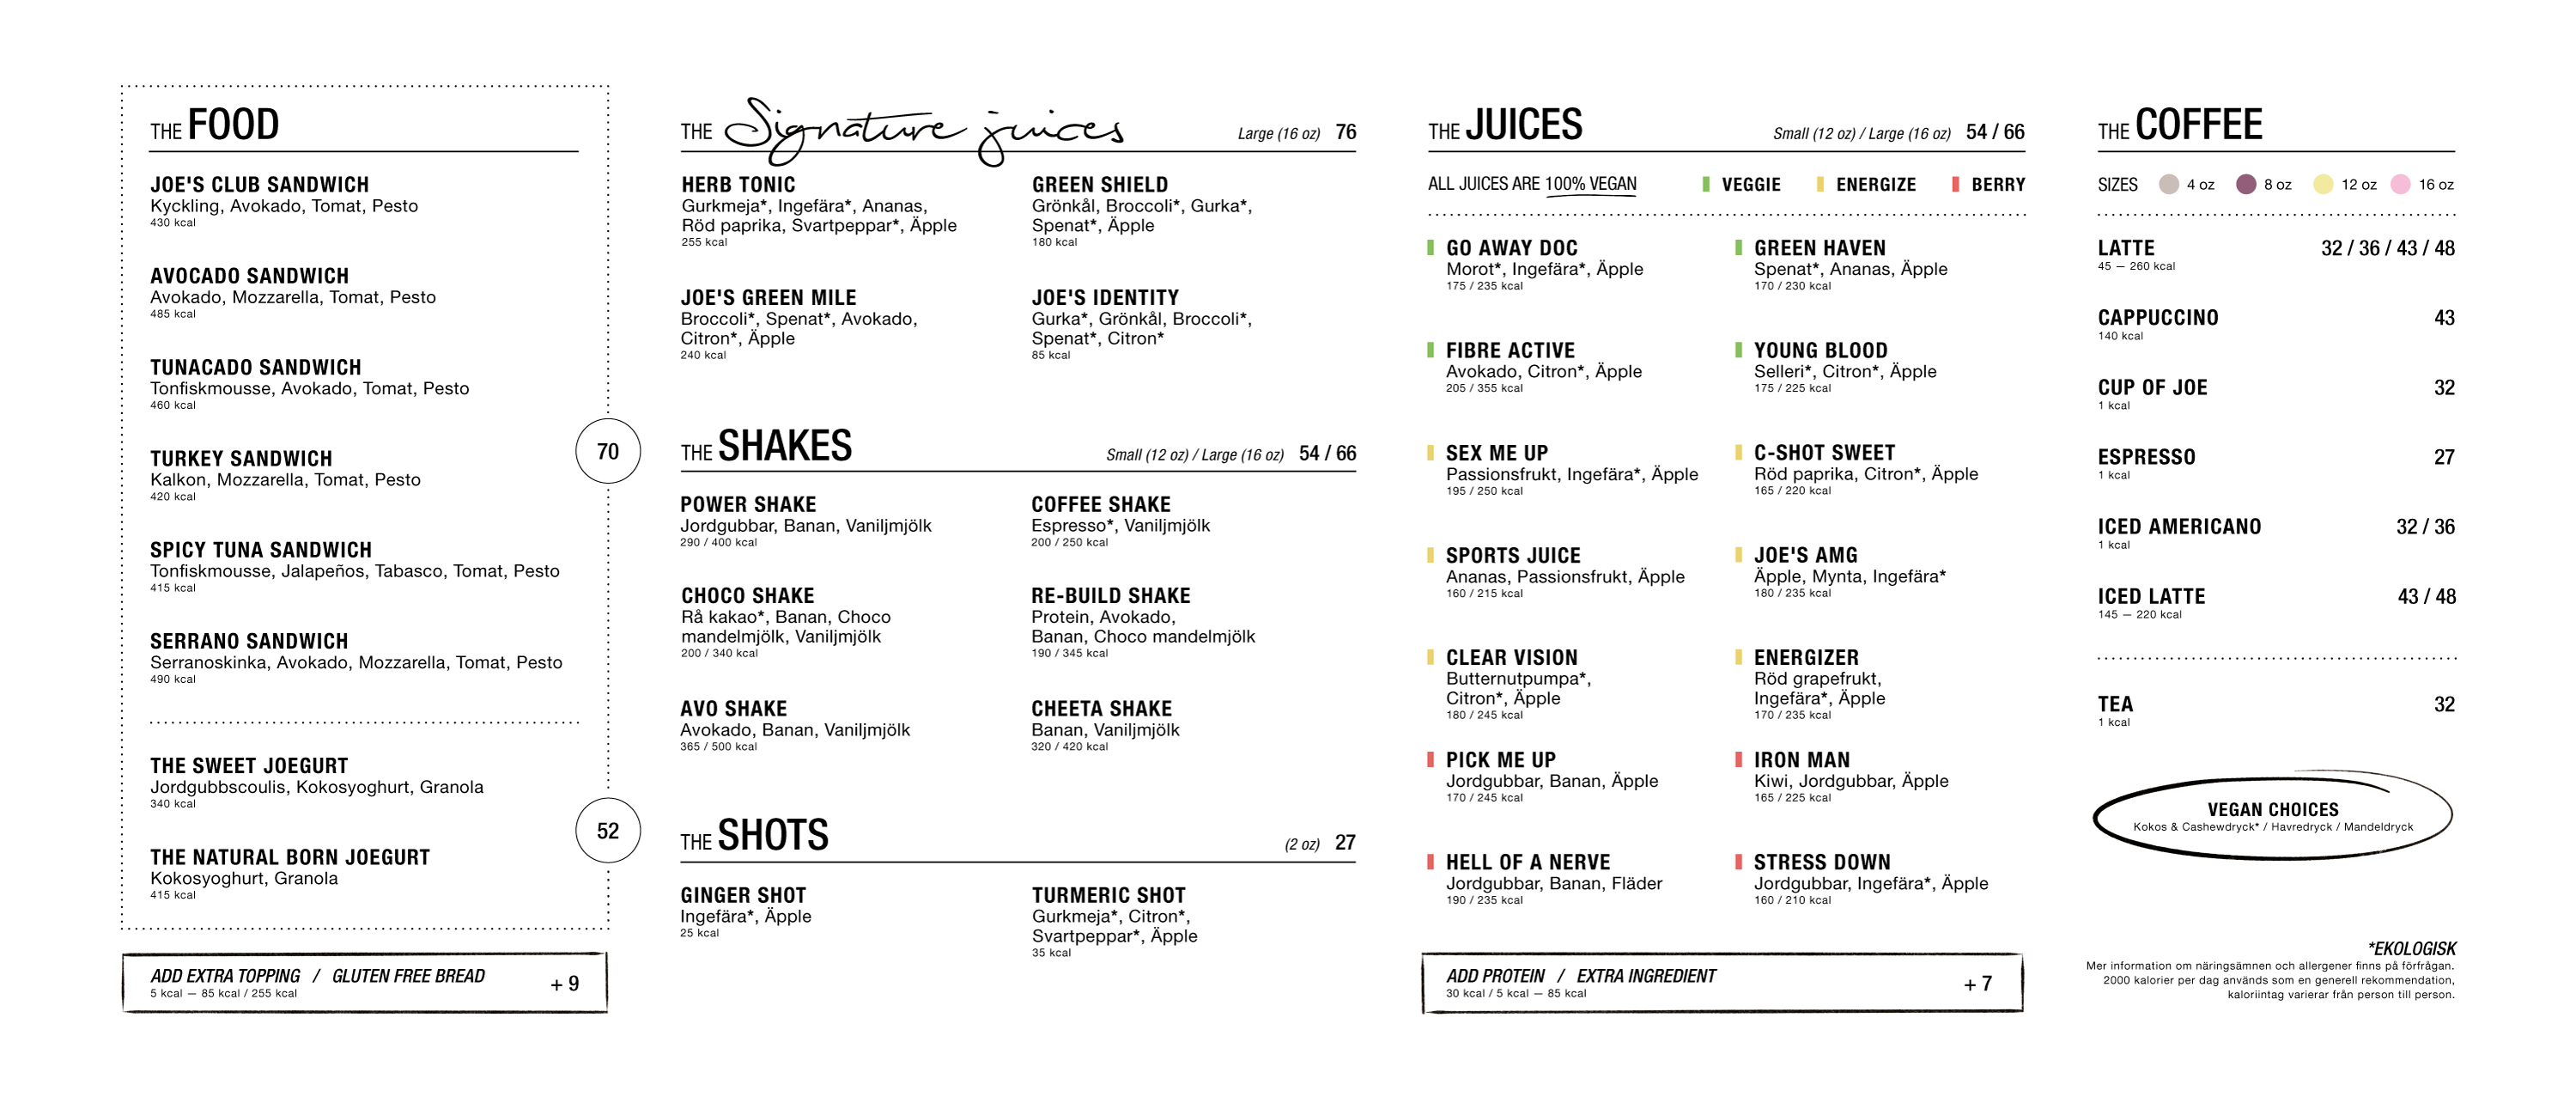 THE FOOD
JOE'S CLUB SANDWICH
Kyckling, Avokado, Tomat, Pesto
430 kcal
AVOCADO SANDWICH
Avokado, Mozzarella, Tomat, Pesto
485 kcal
TUNACADO SANDWICH
Tonfiskmousse, Avokado, Tomat, Pesto
460 kcal
TURKEY SANDWICH
Kalkon, Mozzarella, Tomat, Pesto
420 kcal
SPICY TUNA SANDWICH
Tonfiskmousse, Jalapeños, Tabasco, Tomat, Pesto
415 kcal
SERRANO SANDWICH
Serranoskinka, Avokado, Mozzarella, Tomat, Pesto
490 kcal
70
THE SWEET JOEGURT
Jordgubbscoulis, Kokosyoghurt, Granola
340 kcal
THE NATURAL BORN JOEGURT
Kokosyoghurt, Granola
415 kcal
52
ADD EXTRA TOPPING / GLUTEN FREE BREAD + 9
5 kcal — 85 kcal / 255 kcal
THE Signature juices Large (16 oz) 76
HERB TONIC
Gurkmeja*, Ingefära*, Ananas,
Röd paprika, Svartpeppar*, Äpple
255 kcal
GREEN SHIELD
Grönkål, Broccoli*, Gurka*,
Spenat*, Äpple
180 kcal
JOE'S GREEN MILE
Broccoli*, Spenat*, Avokado,
Citron*, Äpple
240 kcal
JOE'S IDENTITY
Gurka*, Grönkål, Broccoli*,
Spenat*, Citron*
85 kcal
THE SHAKES Small (12 oz) / Large (16 oz) 54 / 66
POWER SHAKE
Jordgubbar, Banan, Vaniljmjölk
290 / 400 kcal
COFFEE SHAKE
Espresso*, Vaniljmjölk
200 / 250 kcal
CHOCO SHAKE
Rå kakao*, Banan, Choco
mandelmjölk, Vaniljmjölk
200 / 340 kcal
RE-BUILD SHAKE
Protein, Avokado,
Banan, Choco mandelmjölk
190 / 345 kcal
AVO SHAKE
Avokado, Banan, Vaniljmjölk
365 / 500 kcal
CHEETA SHAKE
Banan, Vaniljmjölk
320 / 420 kcal
THE SHOTS (2 oz) 27
GINGER SHOT
Ingefära*, Äpple
25 kcal
TURMERIC SHOT
Gurkmeja*, Citron*,
Svartpeppar*, Äpple
35 kcal
THE JUICES Small (12 oz) / Large (16 oz) 54 / 66
ALL JUICES ARE 100% VEGAN VEGGIE ENERGIZE BERRY
GO AWAY DOC
Morot*, Ingefära*, Äpple
175 / 235 kcal
GREEN HAVEN
Spenat*, Ananas, Äpple
170 / 230 kcal
FIBRE ACTIVE
Avokado, Citron*, Äpple
205 / 355 kcal
YOUNG BLOOD
Selleri*, Citron*, Äpple
175 / 225 kcal
SEX ME UP
Passionsfrukt, Ingefära*, Äpple
195 / 250 kcal
C-SHOT SWEET
Röd paprika, Citron*, Äpple
165 / 220 kcal
SPORTS JUICE
Ananas, Passionsfrukt, Äpple
160 / 215 kcal
JOE'S AMG
Äpple, Mynta, Ingefära*
180 / 235 kcal
CLEAR VISION
Butternutpumpa*,
Citron*, Äpple
180 / 245 kcal
ENERGIZER
Röd grapefrukt,
Ingefära*, Äpple
170 / 235 kcal
PICK ME UP
Jordgubbar, Banan, Äpple
170 / 245 kcal
IRON MAN
Kiwi, Jordgubbar, Äpple
165 / 225 kcal
HELL OF A NERVE
Jordgubbar, Banan, Fläder
190 / 235 kcal
STRESS DOWN
Jordgubbar, Ingefära*, Äpple
160 / 210 kcal
ADD PROTEIN / EXTRA INGREDIENT + 7
30 kcal / 5 kcal — 85 kcal
THE COFFEE
SIZES 4 oz 8 oz 12 oz 16 oz
LATTE 32 / 36 / 43 / 48
45 — 260 kcal
CAPPUCCINO 43
140 kcal
CUP OF JOE 32
1 kcal
ESPRESSO 27
1 kcal
ICED AMERICANO 32 / 36
1 kcal
ICED LATTE 43 / 48
145 — 220 kcal
TEA 32
1 kcal
VEGAN CHOICES
Kokos & Cashewdryck* / Havredryck / Mandeldryck
*EKOLOGISK
Mer information om näringsämnen och allergener finns på förfrågan.
2000 kalorier per dag används som en generell rekommendation,
kaloriintag varierar från person till person.